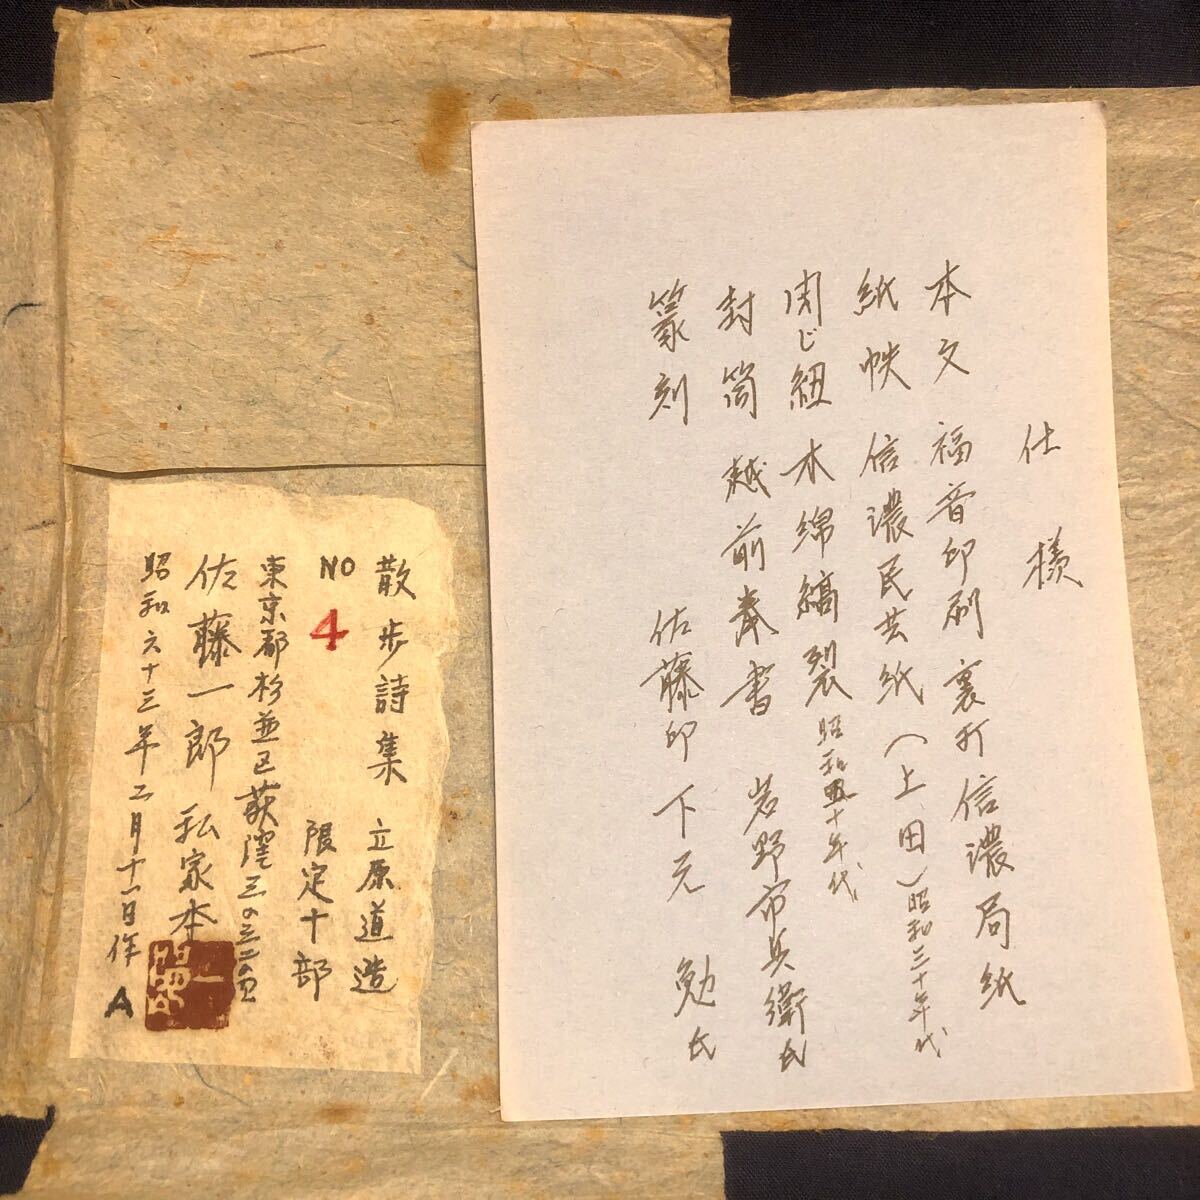 仕様
本文 福音印刷 裏打 信濃局紙
紙帙 信濃民芸紙(上田)昭和三十年代
閉じ紐 木綿縞裂 昭和五十年代
封筒 越前奉書 岩野市兵衛氏
篆刻 佐藤印 下元 勉氏
散歩詩集 立原道造
NO 4 限定十部
東京都杉並区荻窪三の三二の
佐藤一郎 私家本
昭和六十三年二月十一日作 A